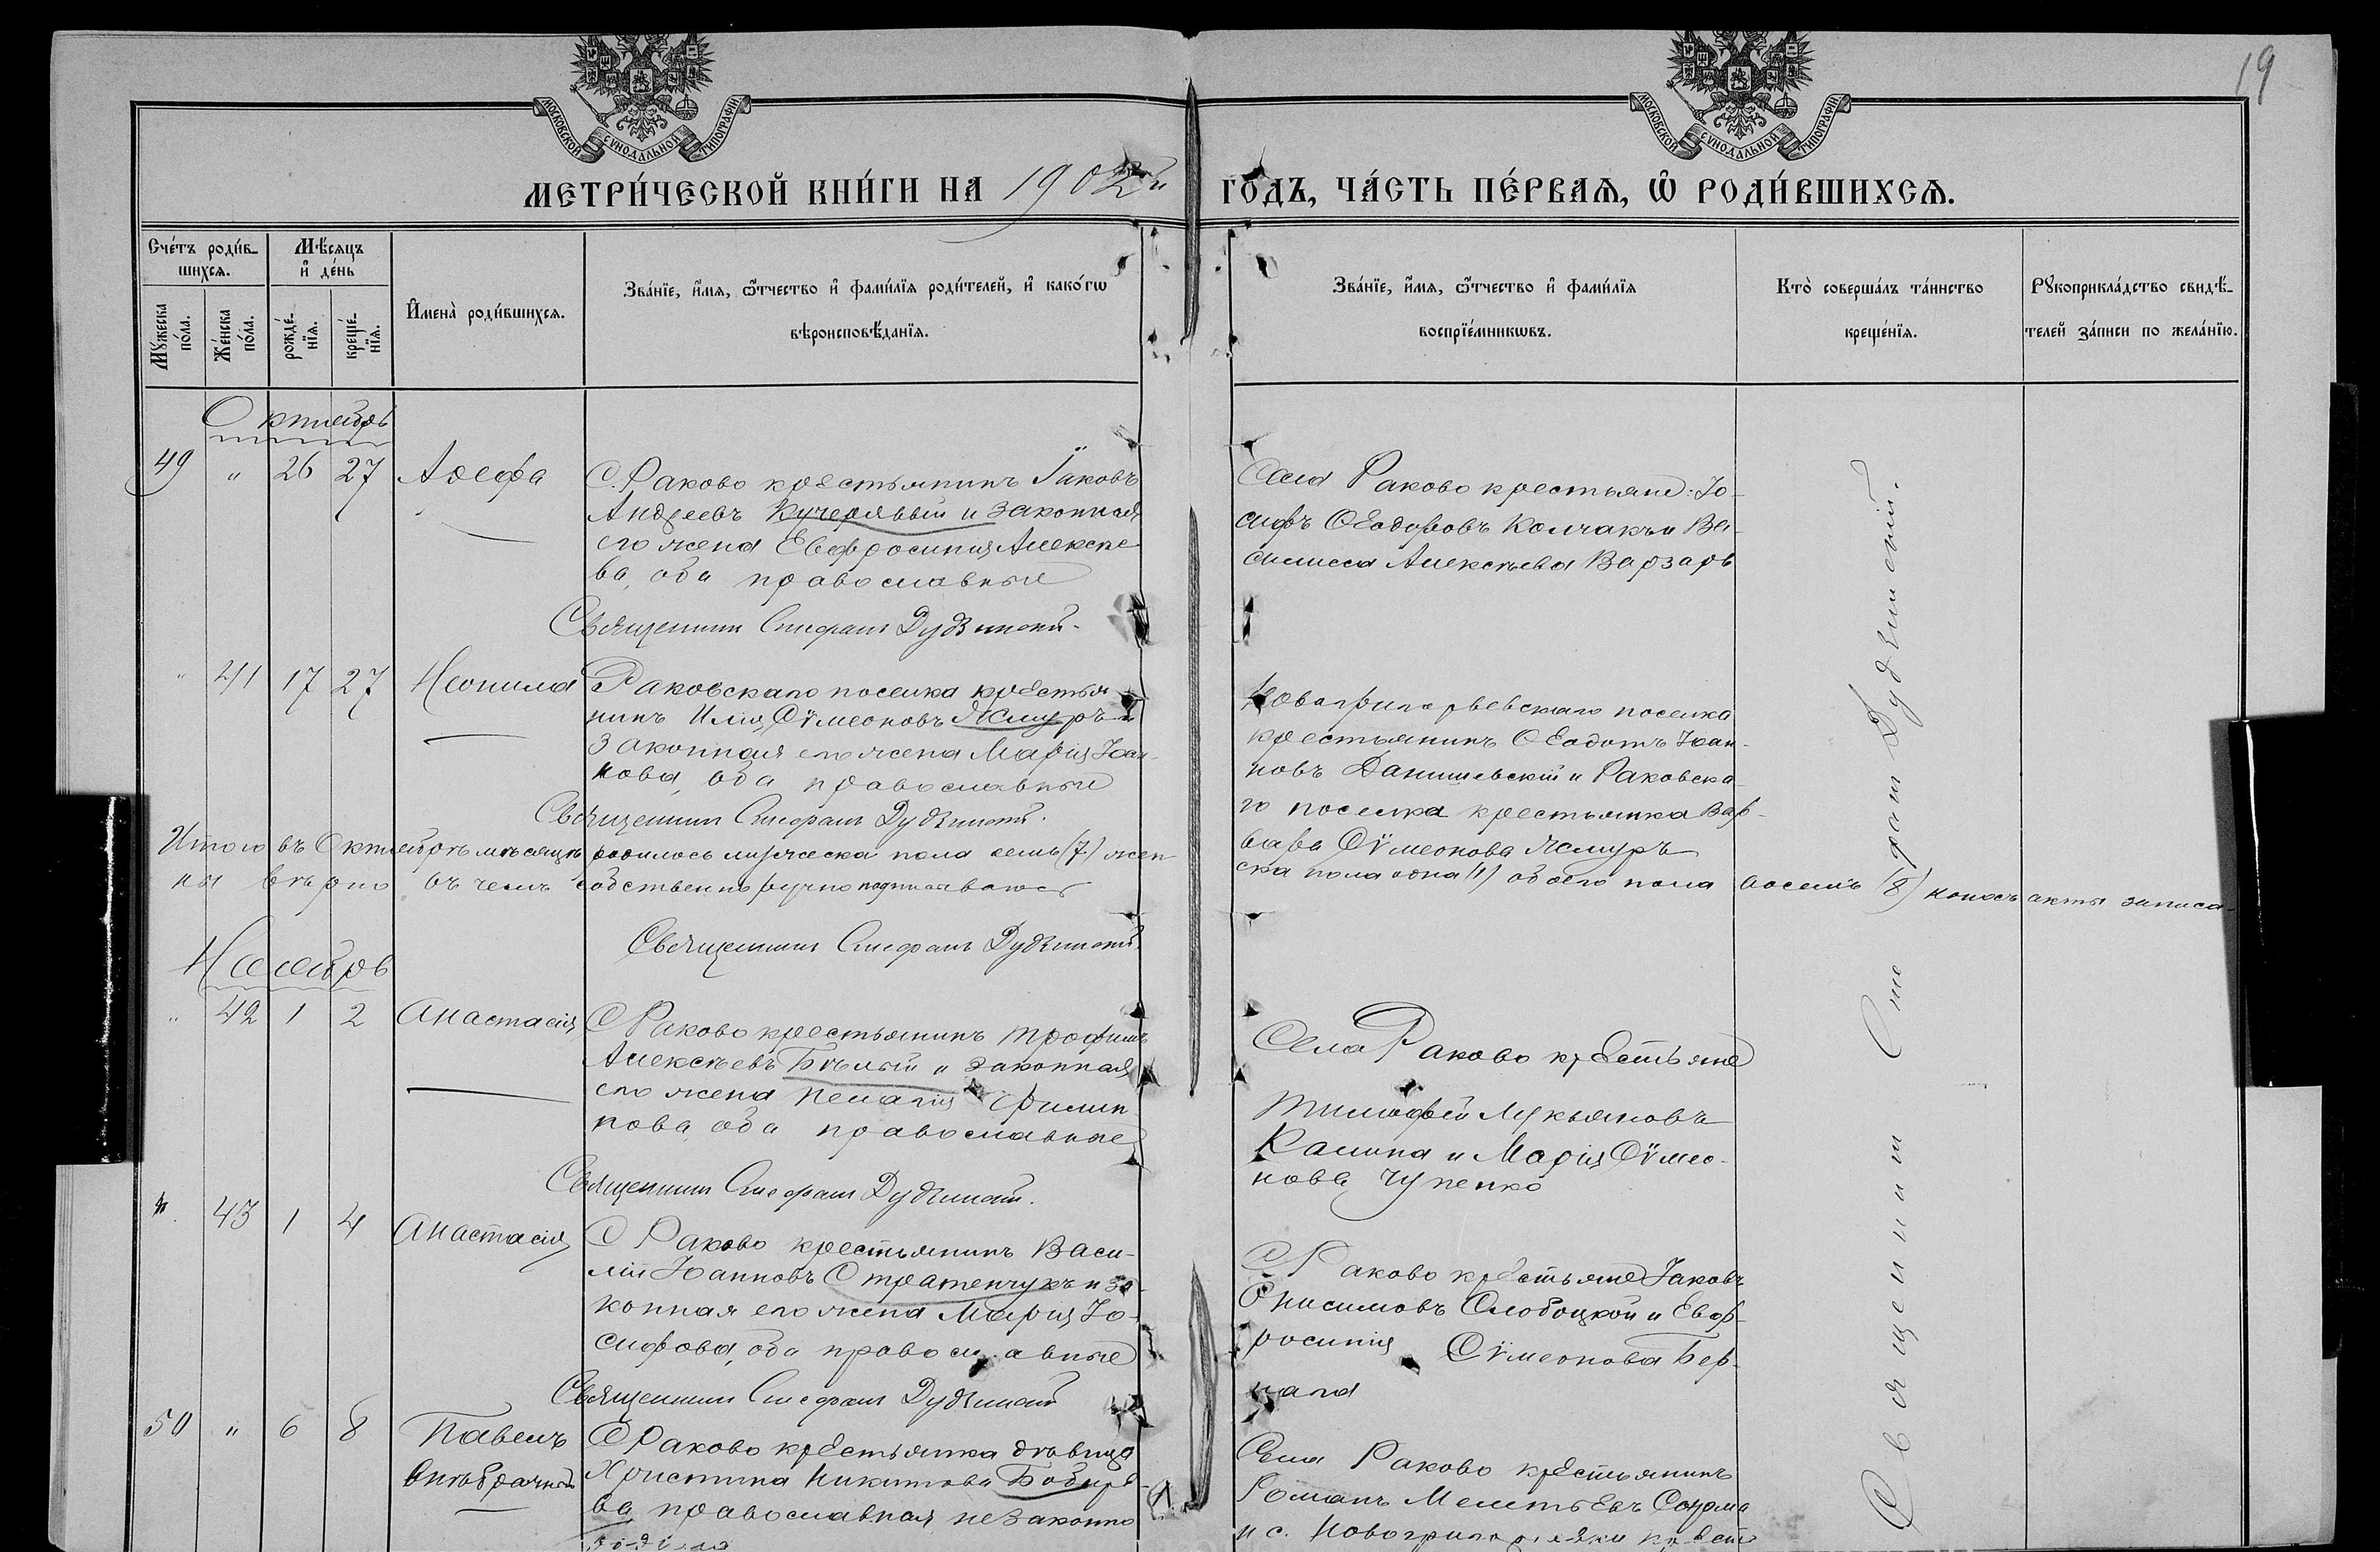 19
МОСКОВСКОЙ СУНОДАЛЬНОЙ ТИПОГРАФІИ
МОСКОВСКОЙ СУНОДАЛЬНОЙ ТИПОГРАФІИ
МЕТРИ́ЧЕСКОЙ КНИ́ГИ НА 1902й ГОДЪ, ЧА́СТЬ ПЕ́РВАѦ, Ѡ РОДИ́ВШИХСѦ.
Сче́тъ роди́в-
шихся.
Мѣ́сяцъ
и де́нь
Му́жеска по́ла.
Же́нска по́ла.
рожде́-нїя.
креще́-нїя.
Имена̀ роди́вшихся.
Зва́нїе, и́мя, ѻ́тчество и фами́лїя роди́телей, и како́гѡ
вѣроисповѣ́данїя.
Зва́нїе, и́мя, ѻ́тчество и фами́лїя
воспрїе́мникѡвъ.
Кто̀ соверша́лъ та́инство
креще́нїя.
Рꙋкоприкла́дство свидѣ́-
телей за́писи по жела́нїю.
Октябрь
49 " 26 27 Агефа
С. Раково крестьянинъ Іаковъ
Андреевъ Кучерявый и законная
его жена Евфросинія Алексѣе-
ва, оба православные
Священникъ Стефанъ Дудзинскій.
Села Раково крестьяне: Іо-
сифъ Ѳеодоровъ Колчакъ и Ва-
силисса Алексѣева Варзарь
" 41 17 27 Неонила
Раковскаго поселка крестья
нинъ Илія Сѵмеоновъ Ясмуръ и
законная его жена Марія Іоан-
нова, оба православные
Священникъ Стефанъ Дудзинскій.
Новогригорьевскаго поселка
крестьянинъ Ѳеодотъ Іоан-
новъ Данишевскій и Раковска-
го поселка крестьянка Вар-
вара Сѵмеонова Ясмуръ
Итого въ Октябрѣ мѣсяцѣ родилось мужеска пола семь (7) жен
ска пола одна (1) обоего пола восемь (8) коихъ акты записа-
ны вѣрно въ чемъ собственноручно подписываюсь
Священникъ Стефанъ Дудзинскій.
Ноябрь
" 42 1 2 Анастасія
С Раково крестьянинъ Трофимъ
Алексѣевъ Бѣлый и законная
его жена Пелагія Филип-
пова, оба православные
Священникъ Стефанъ Дудзинскій.
Села Раково крестьяне
Тимофей Лукьяновъ
Калина и Марія Сѵмео-
нова Чупенко
" 43 1 4 Анастасія
С Раково крестьянинъ Васи-
лій Іоанновъ Стратенчукъ и за-
конная его жена Марія Іо-
сифова, оба православные
Священникъ Стефанъ Дудзинскій
С Раково крестьяне Іаковъ
Онисимовъ Слободской и Евф-
росинія Сѵмеонова Бер-
50 " 6 8 Павелъ
Внѣбрачный
С Раково крестьянка дѣвица
Христина Никитова Бобыре-
ва, православная, незаконно
родила
Села Раково крестьянинъ
Романъ Мелетьевъ
и с. Новогригорьевки крест
Священникъ Стефанъ Дудзинскій.